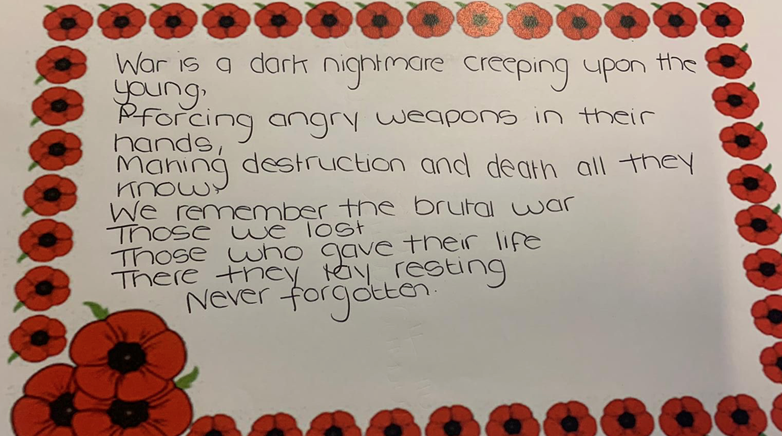 War is a dark nightmare creeping upon the
young,
forcing angry weapons in their
hands,
Making destruction and death all they
know,
We remember the brutal war
Those we lost
Those who gave their life
There they lay resting
Never forgotten.